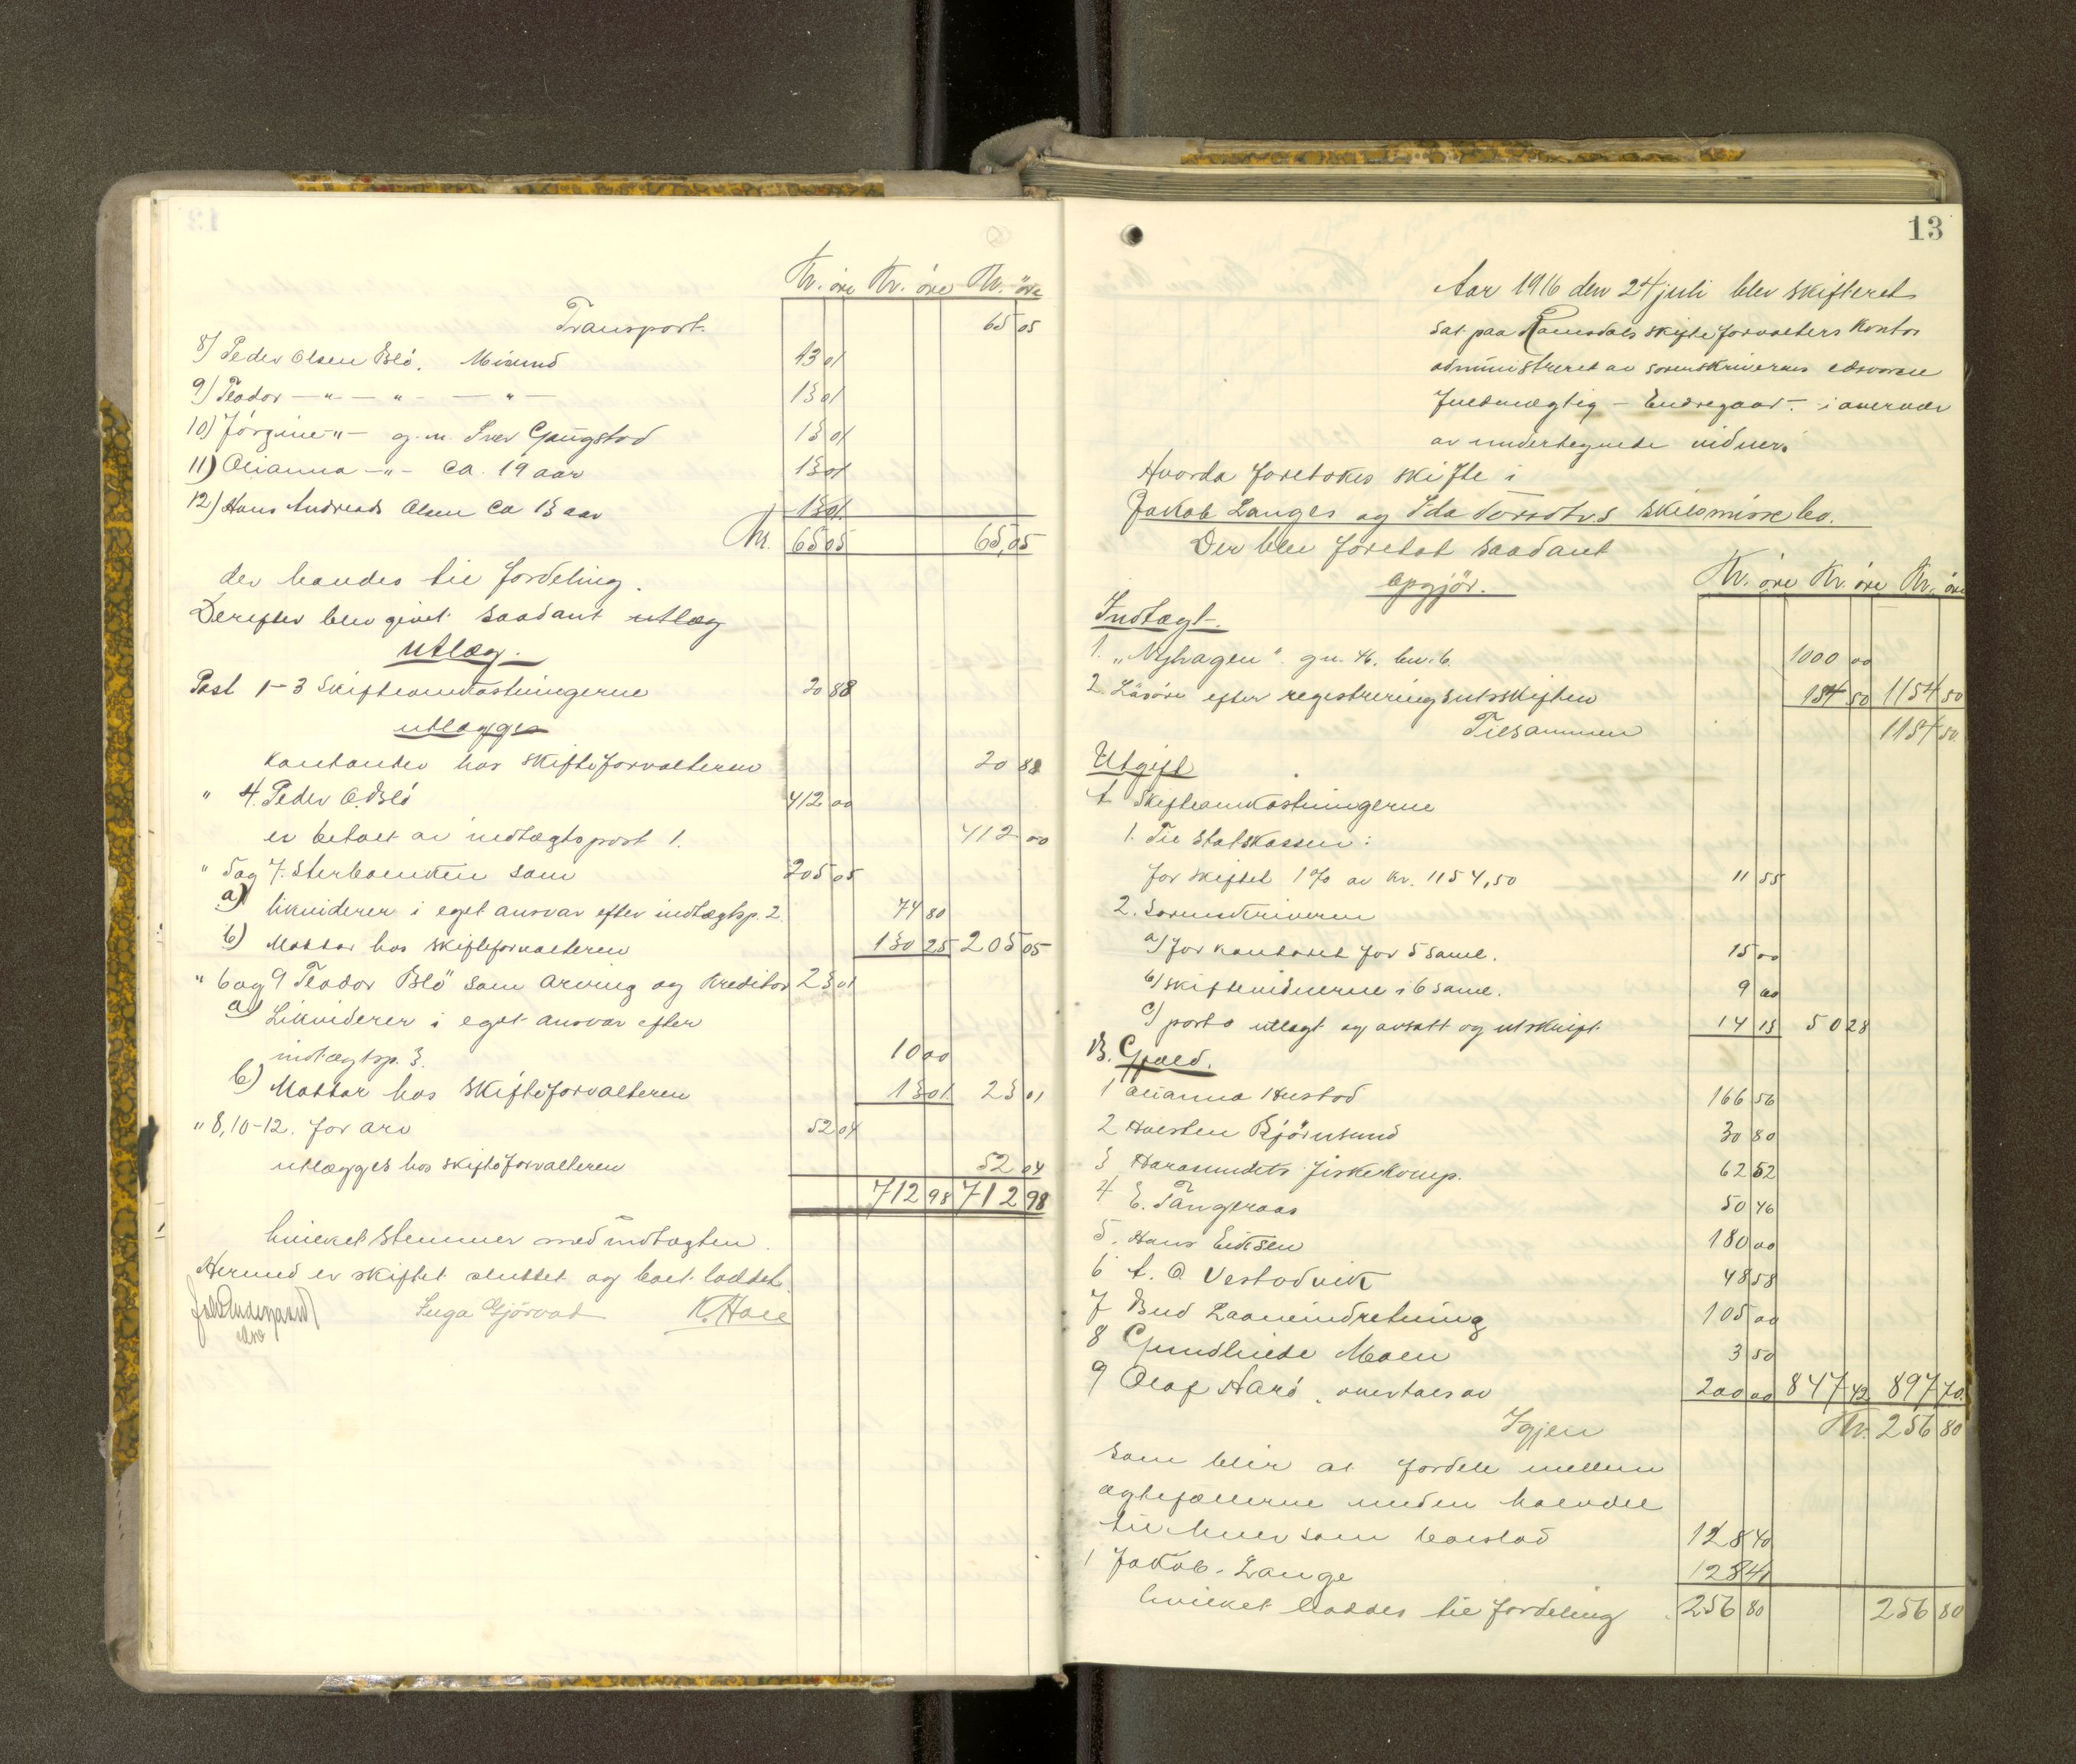 Kr. øre Kr. øre Kr. øre
Transport 65 05
8) Peder Olsen Blö, Misund 13 01
9) Teodor —"— " — " — 13 01
10) Jörgine —"— g. m. Iver Gaugstad 13 01
11) Olianna —"— ca. 19 aar 13 01
12) Hans Andreas Olsen ca 13 aar 13 01
Kr. 65 05 65,05
der haves til fordeling.
Derefter blev givet saadant utlæg
utlæg.
Post 1-3 Skifteomkostningerne 20 88
utlægges
kontanter hos skifteforvalteren 20 88
" 4. Peder O. Blö 412 00
er betalt av indtægtspost 1. 412 00
" 5 og 7. Sterboenken som 205 05
a) likviderer i eget ansvar efter indtægtsp. 2. 74 80
b) Mottar hos skifteforvalteren 130 25 205 05
" 6 og 9 Teodor Blö som arving og kreditor 23 01
a) Likviderer i eget ansvar efter
indtægtsp. 3. 10 00
b) Mottar hos skifteforvalteren 13 01 23 01
" 8, 10-12. for arv 52 04
utlægges hos skifteforvalteren 52 04
712 98 712 98
hvilket stemmer med indtægten.
Hermed er skiftet sluttet og boet
Inga Gjörvad K. Hoel
13
Aar 1916 den 24 juli blev skifteret
sat paa Romsdals skifteforvalters kontor
administreret av sorenskriverens edsvorne
fuldmægtig — Endregaard — i overvær
av undertegnede vidner.
Hvorda foretokes skifte i
Jakob Langes og Ida Torsdtrs skilsmissebo.
Der blev foretat saadant
opgjör.
Kr. øre Kr. øre Kr. øre
Indtægt.
1. „Nyhagen" gn. 46. bn. 6. 1000 00
2. Lösöre efter registreringsutskriften 154 50 1154 50
Tilsammen 1154 50
Utgift
A. Skifteomkostningerne
1. Til Statskassen:
for skiftet 1 % av kr. 1154,50 11 55
2. Sorenskriveren
a) for kontoret for 5 saml. 15 00
b) skiftevidnerne i 6 saml. 9 00
c) porto utlagt og avsatt og utskrift 14 13 50 28
B. Gjæld.
1 Olianna Hustad 166 56
2 Halsten Björnsund 30 80
3 Harøsundets fiskekomp. 62 52
4 E. Tangeraas 50 46
5. Hans Eidsen 180 00
6 A. O. Vestadvik 48 58
7 Bud Laaneindretning 105 00
8 Gunhilde Moen 3 50
9 Olaf Harö, overtaes av 200 00 847 42 897 70
Igjen Kr. 256 80
som blir at fordele mellem
ægtefællerne med en halvdel
til hver som boeslod 128 40
1 Jakob Lange 128 40
hvilket haddes til fordeling 256 80 256 80